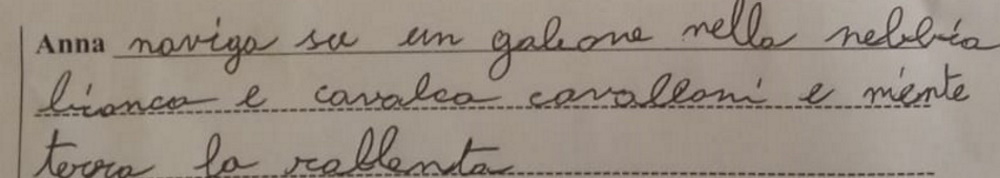 Anna naviga su un galeone nella nebbia
bianca e cavalca cavalloni e miente
terra la rallenta